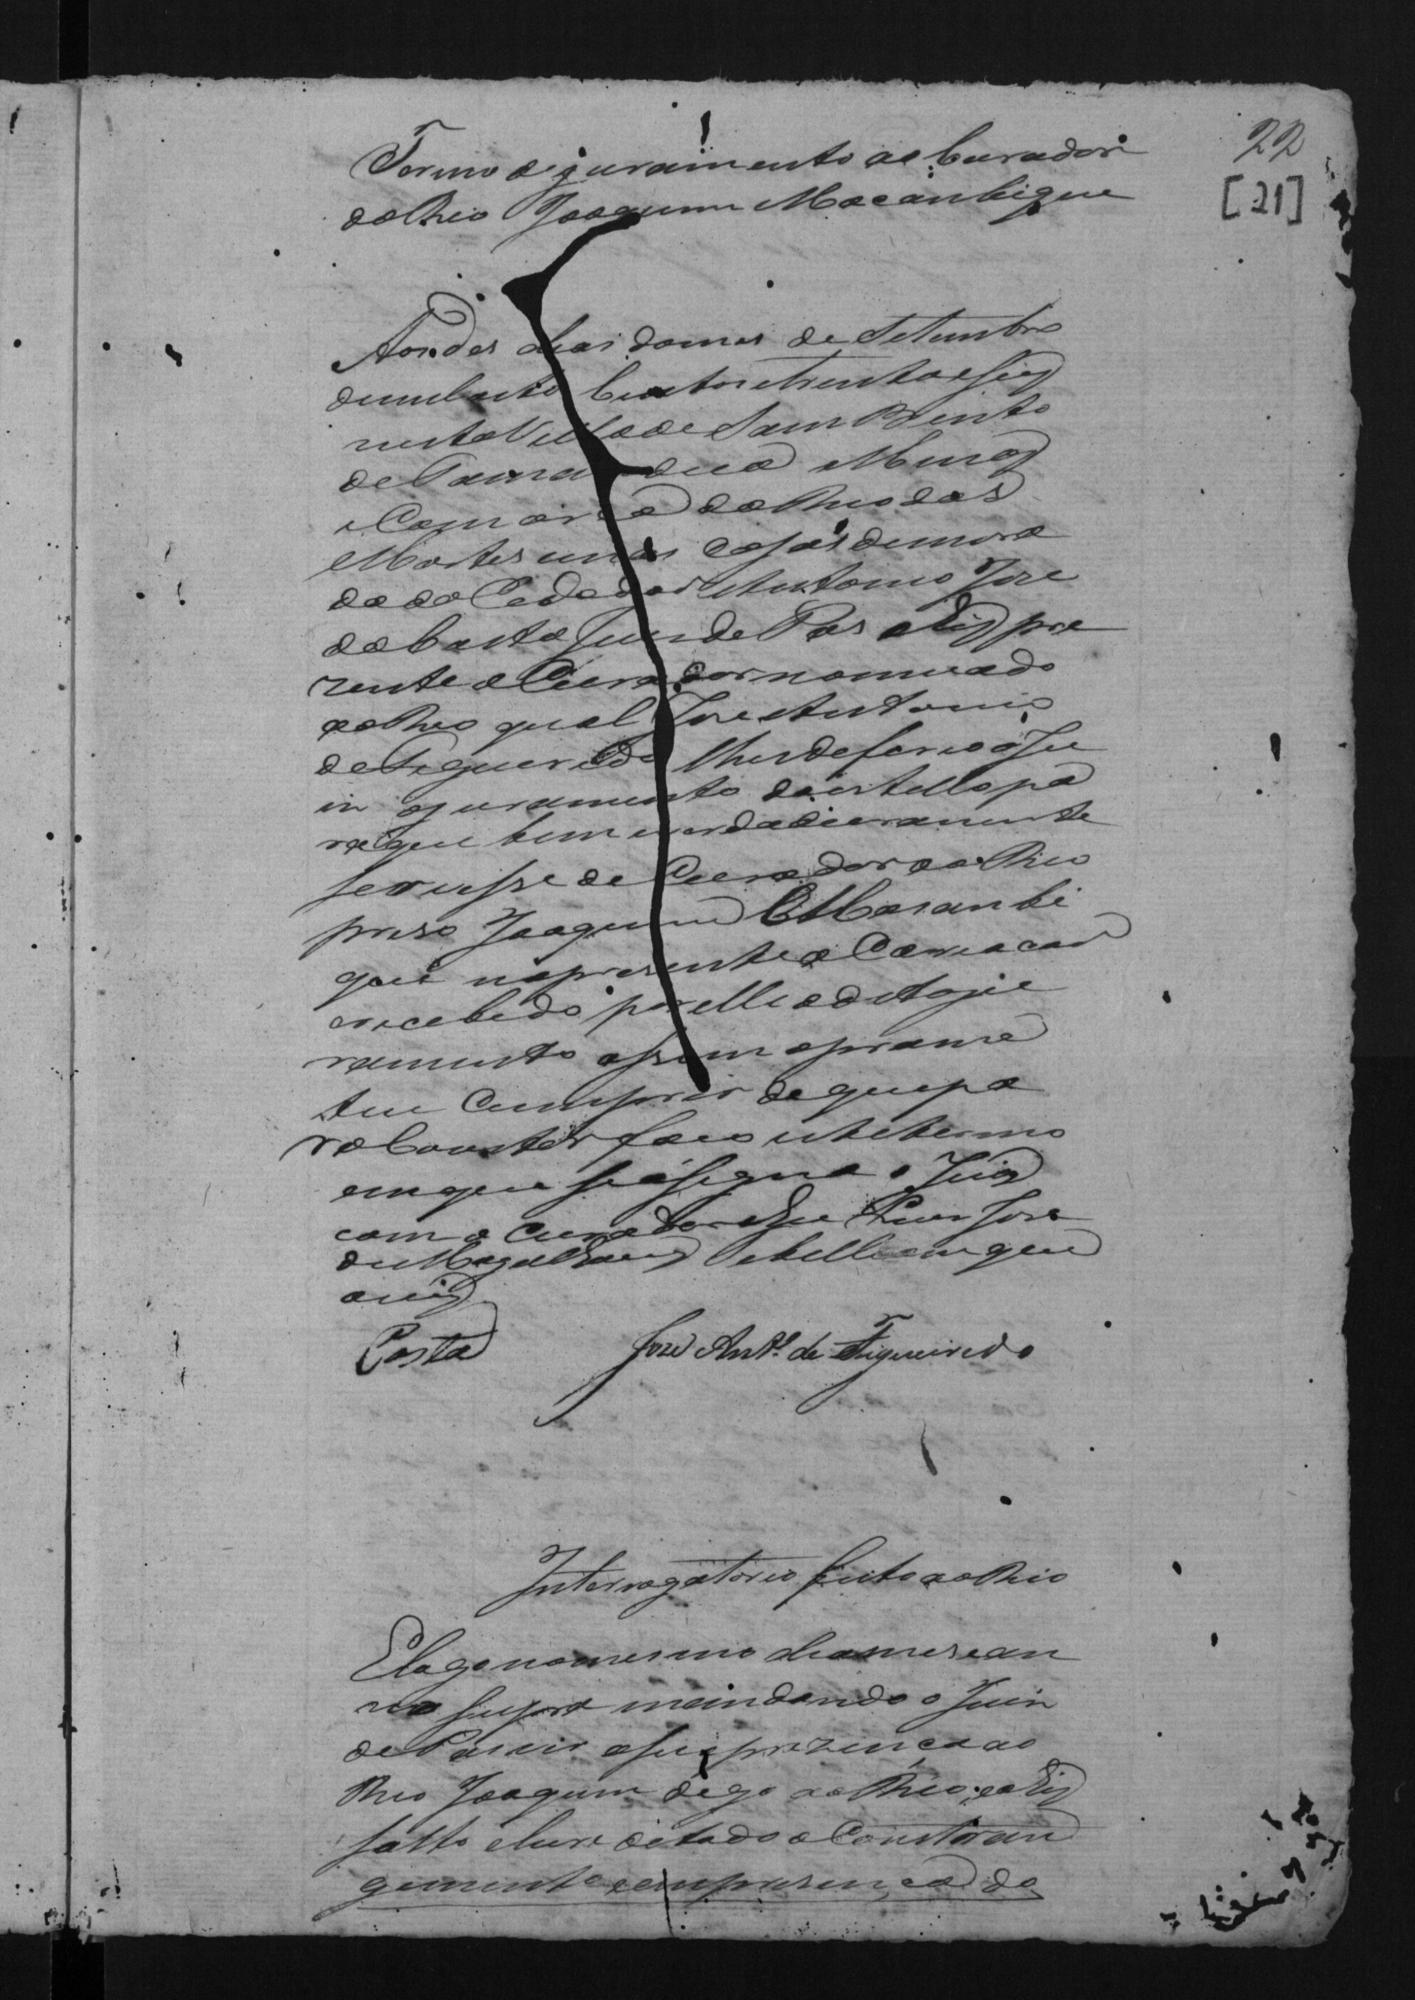 22
[21]
Termo de juramento ao Curador
do Reo Joaquim Mocambique
Aos des dias do mes de Setembro
de mil oito Centos e trinta e seis
nesta Villa de Sam Bento
de Tamanduá Minas
e Comarca do Rio das
Mortes em as Casas de mora
da do Cidadão Antonio Jose
da Costa Juis de Pas ahi pre
zente o Curador nomeado
ao Reo qual Jose Antonio
de Figueredo lhes deferio o Ju
is o juramento do estillo pa
ra que bem e verdadeiramente
servisse de Curador ao Reo
preso Joaquim Mosambi
que na prezente Cauza e ao
recebido por elle o dito ju
ramento assim o prome
teu Cumprir de que pa
ra Constar faco este termo
em que se asigna o Juis
com o Curador Eu Luis Jose
de Magalhaens Rebello em que
a Costa Jozé Ant.º de Figueiredo
Interrogatorio feito ao Reo
E logo no mesmo dia mes e an
no supra mandando o Juis
de Pas vir a sua prezenca ao
Reo Joaquim digo ao Reo e ahi
solto e livre de todo o Constran
gimento e em presenca do